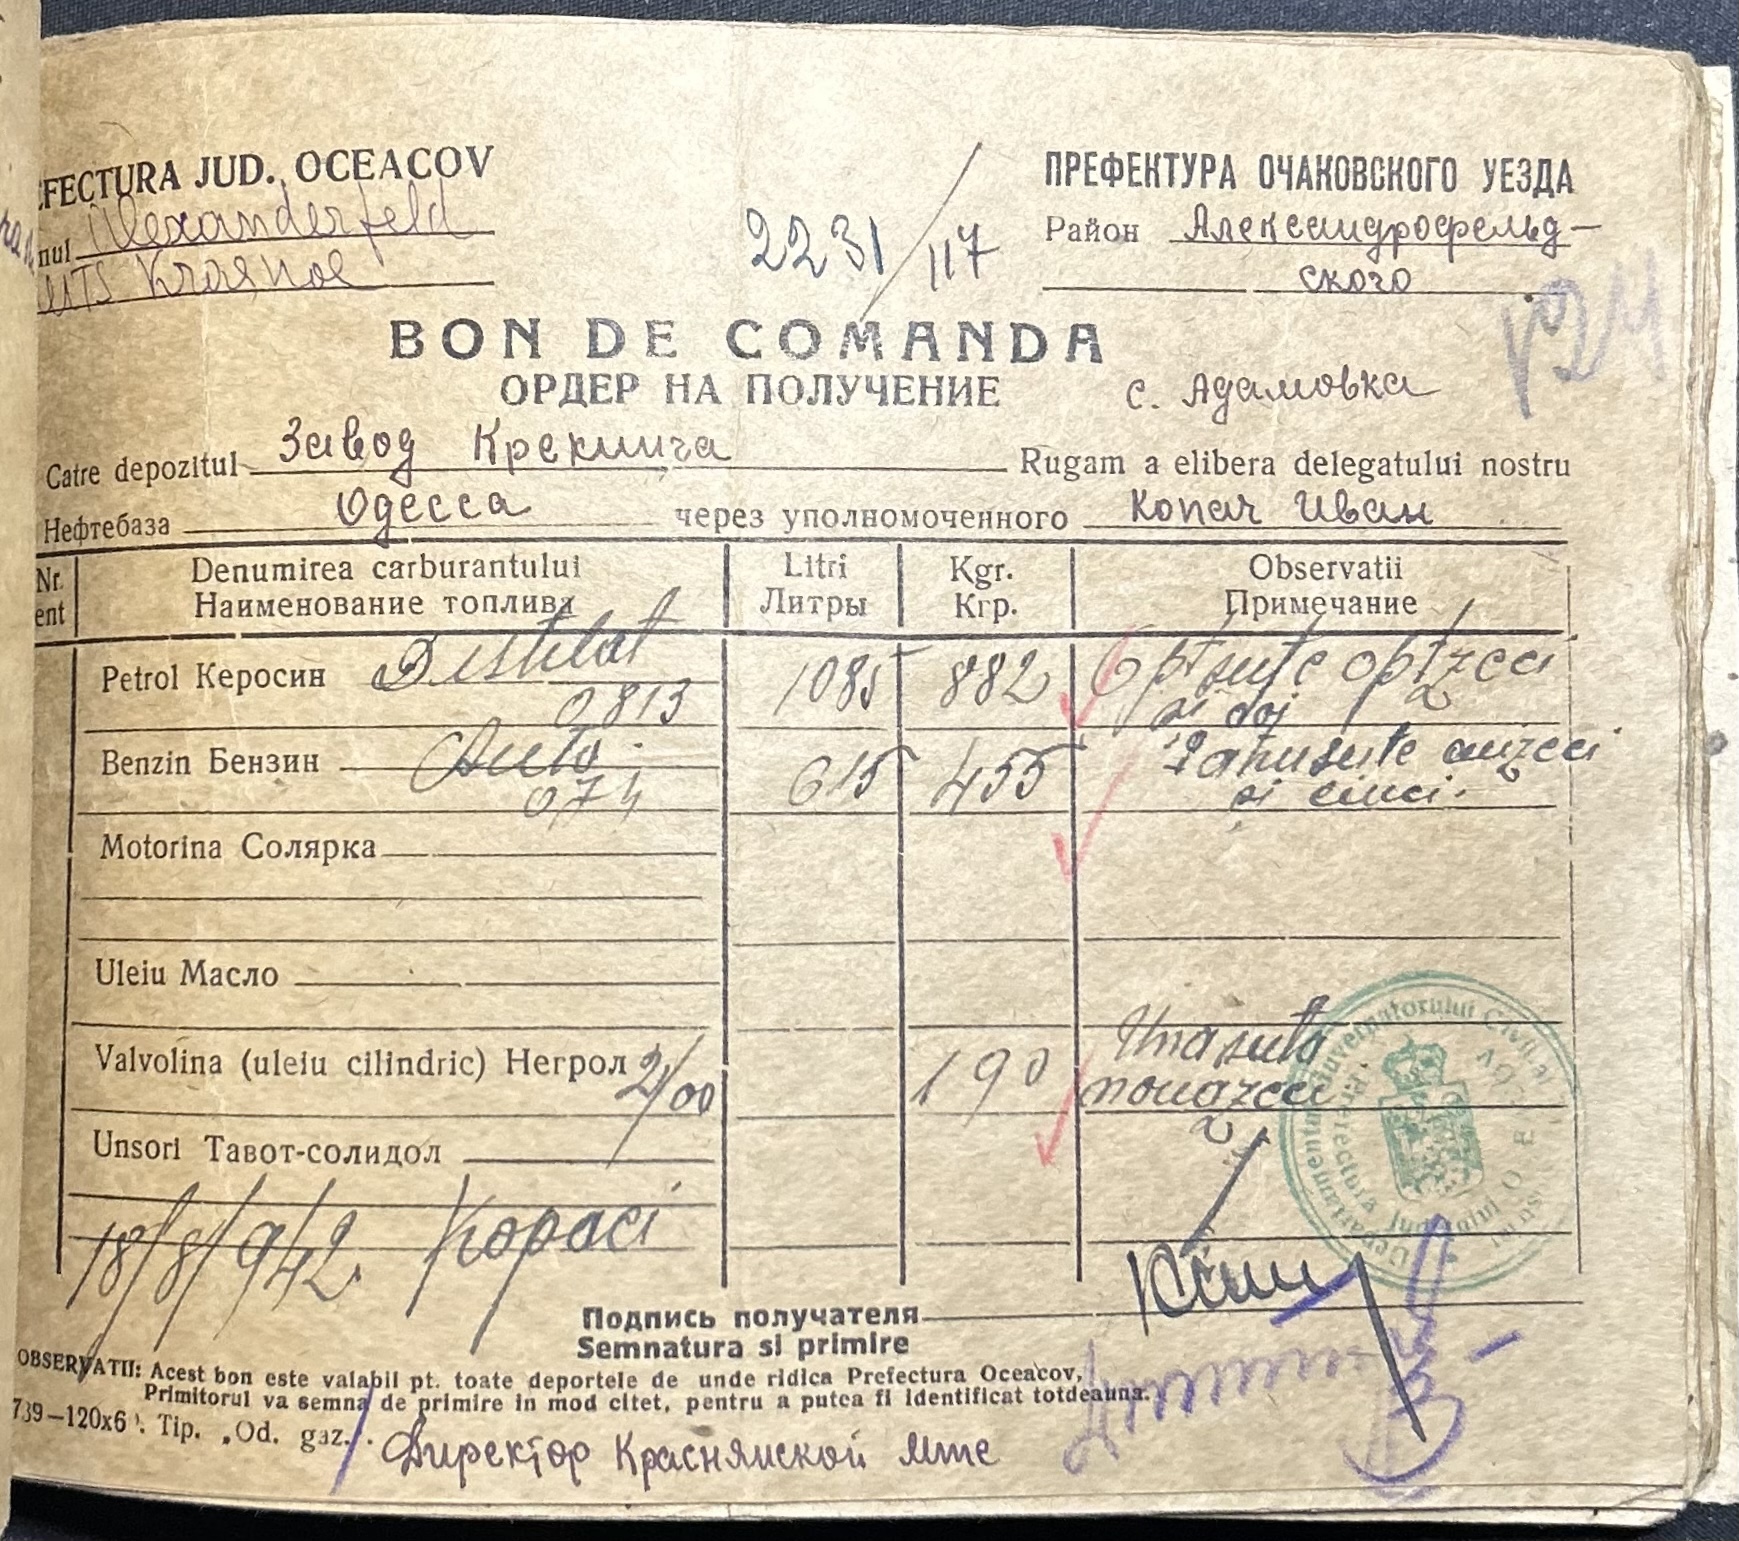 EFECTURA JUD. OCEACOV
nul Alexanderfeld
MTS Krasnoe
2231/117
ПРЕФЕКТУРА ОЧАКОВСКОГО УЕЗДА
Район Александрофельд-
ского
BON DE COMANDA
ОРДЕР НА ПОЛУЧЕНИЕ
с. Адамовка
Catre depozitul Завод Крекинга Rugam a elibera delegatului nostru
Нефтебаза Одесса через уполномоченного Копач Иван
Nr. Denumirea carburantului Litri Kgr. Observatii
ent Наименование топлива Литры Кгр. Примечание
Petrol Керосин Distilat 1085 882 Optsute optzeci
0813 si doi
Benzin Бензин Auto 615 455 Patrusute cinzeci
074 si cinci.
Motorina Солярка
Uleiu Масло
Valvolina (uleiu cilindric) Негрол 2/00 190 Unasuta
nouazeci
Unsori Тавот-солидол
18/8/942 Kopaci
Подпись получателя
Semnatura si primire
OBSERVATII: Acest bon este valabil pt. toate deportele de unde ridica Prefectura Oceacov,
Primitorul va semna de primire in mod citet, pentru a putea fi identificat totdeauna.
739—120x6 Tip. „Od. gaz.
Директор Краснянской мтс
Guvernatorului Civil
Prefectura